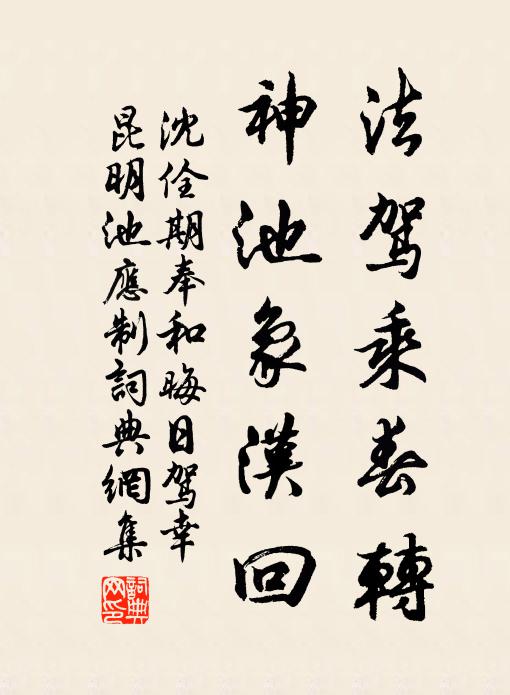 法駕乘春轉
神池象漢回
沈佺期奉和晦日駕幸
昆明池應制詞典網集
詞典网印